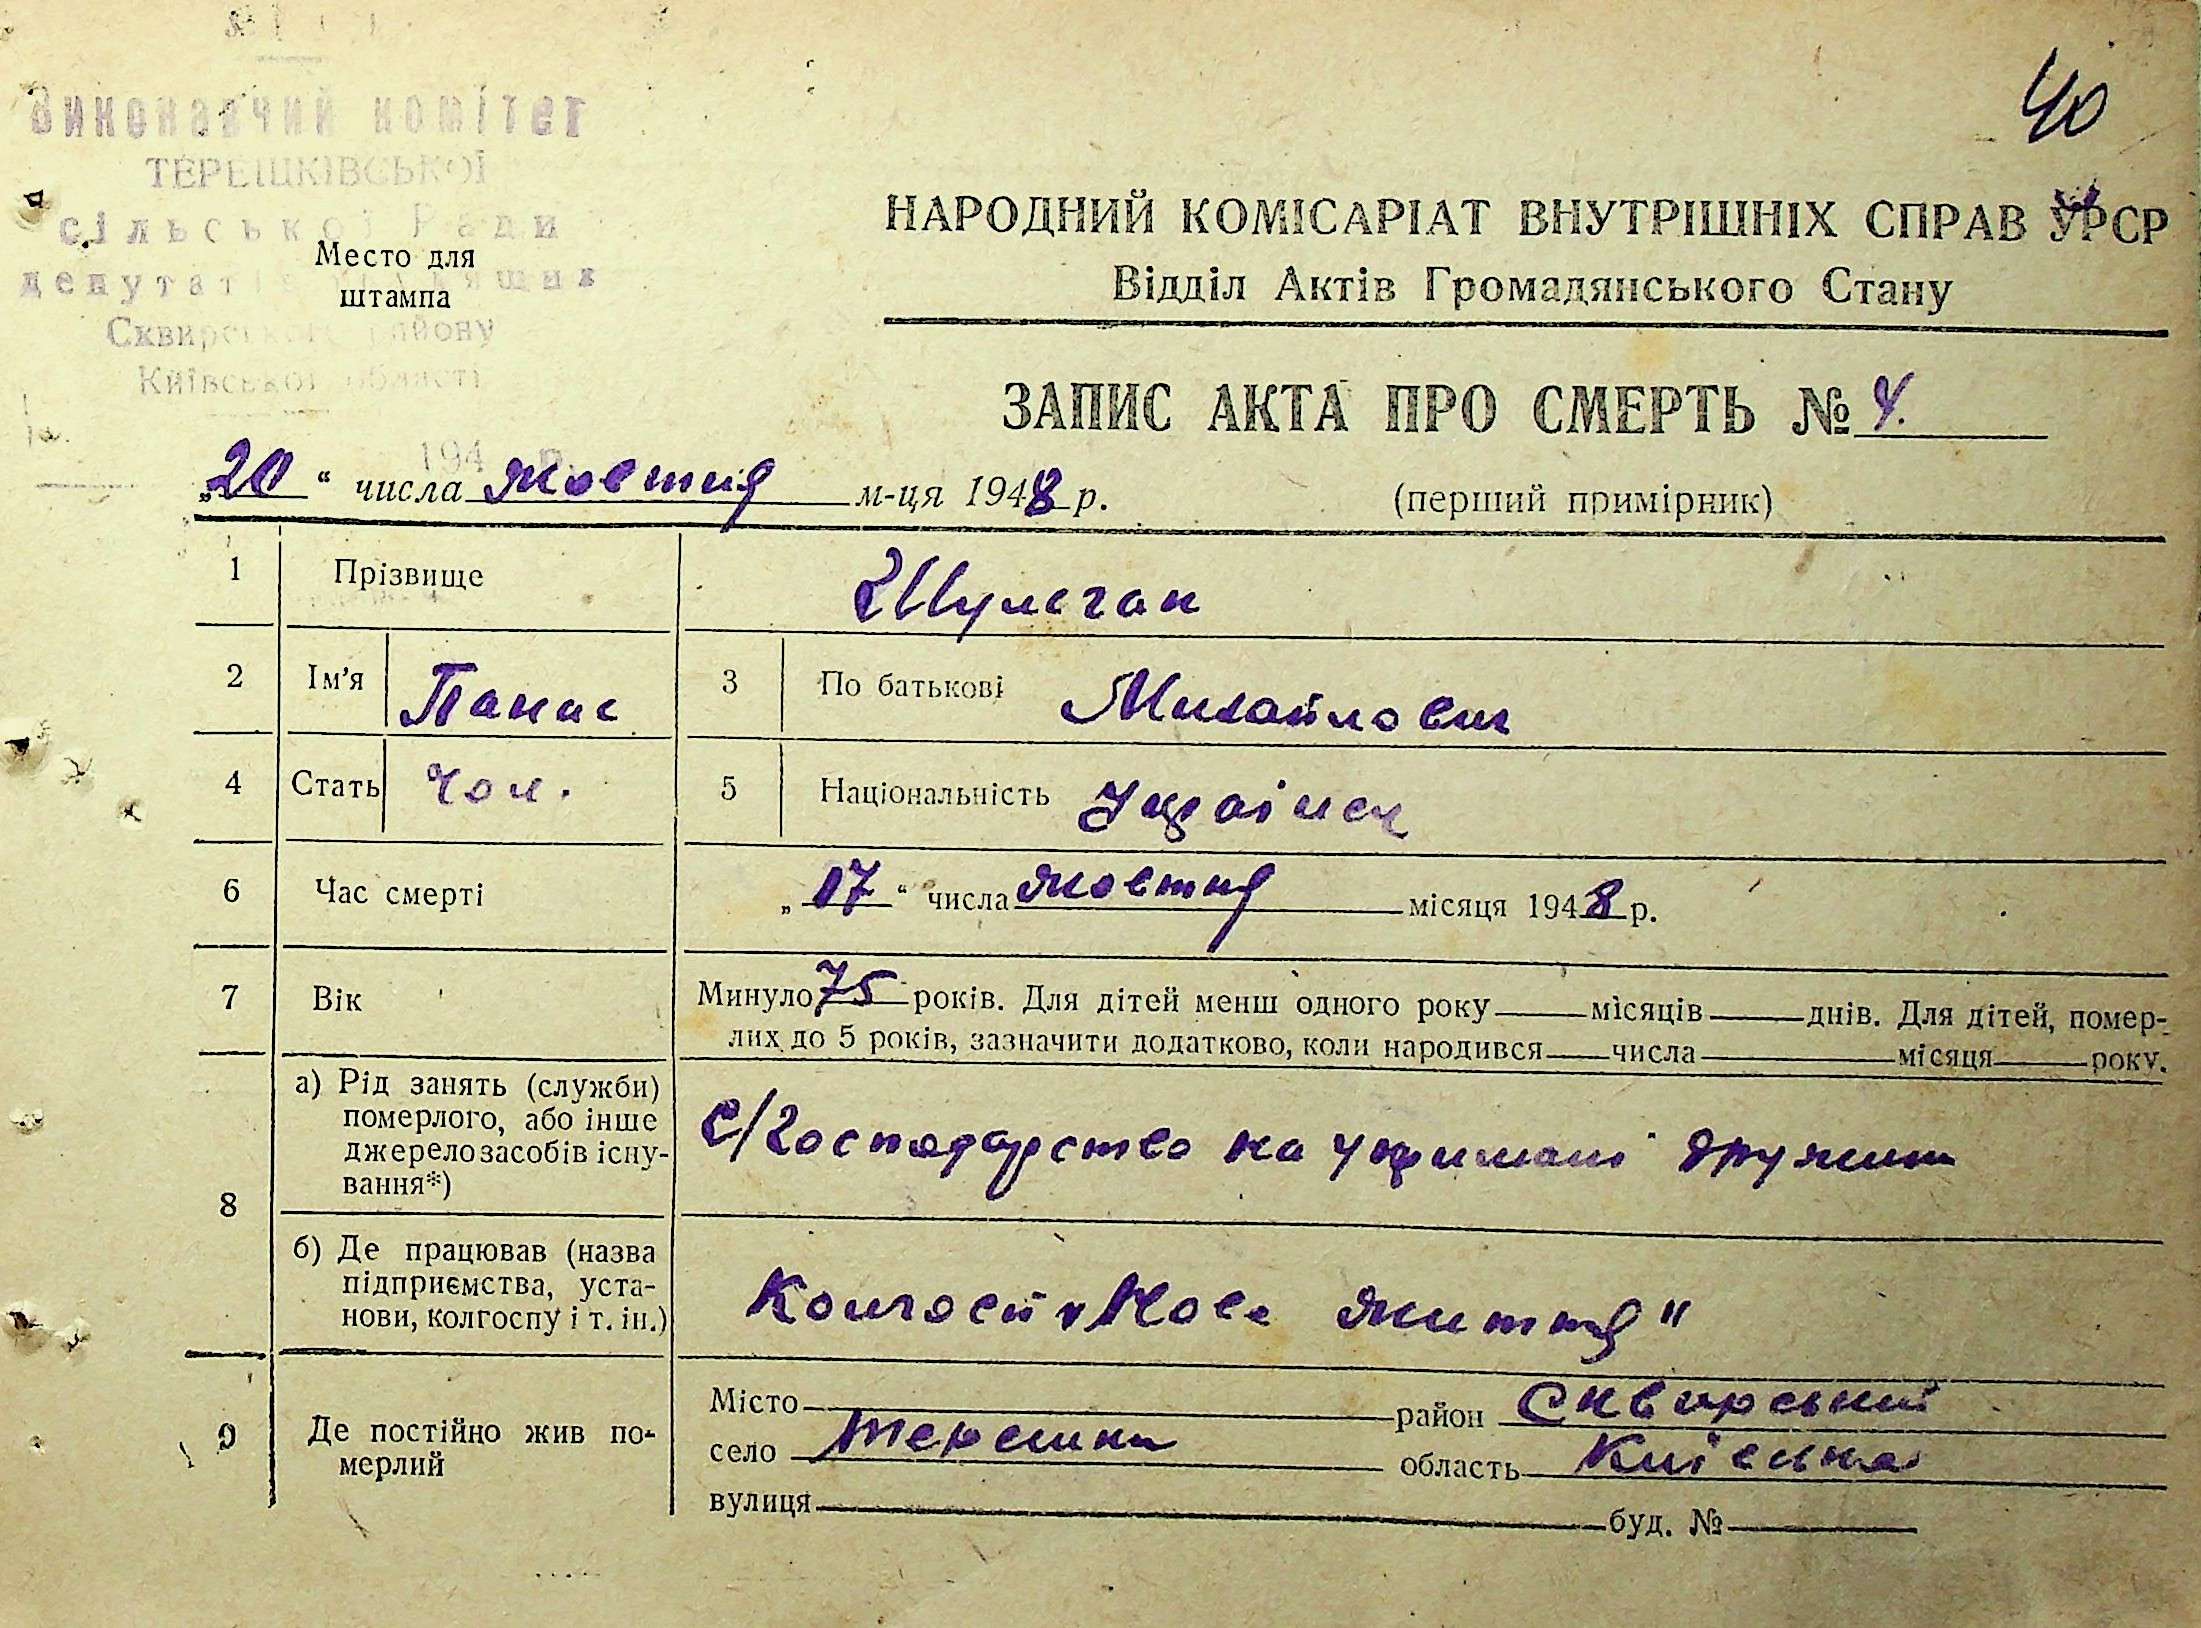 Виконавчий комітет
ТЕРЕШКІВСЬКОЇ
сільської Ради
депутатів трудящих
Сквирського району
Київської області
194 р.
Место для
штампа
40
НАРОДНИЙ КОМІСАРІАТ ВНУТРІШНІХ СПРАВ УРСР
Відділ Актів Громадянського Стану
ЗАПИС АКТА ПРО СМЕРТЬ № 4.
„20“ числа жовтня м-ця 1948 р. (перший примірник)
1 Прізвище Шулеган
2 Ім’я Панас 3 По батькові Михайлович
4 Стать Чол. 5 Національність Українец
6 Час смерті „17“ числа жовтня місяця 1948 р.
7 Вік Минуло 75 років. Для дітей менш одного року місяців днів. Для дітей, помер-
лих до 5 років, зазначити додатково, коли народився числа місяця року.
8 а) Рід занять (служби)
померлого, або інше
джерело засобів існу-
вання*)
С/Господарство на утримані дружини
б) Де працював (назва
підприємства, уста-
нови, колгоспу і т. ін.)
Колгосп „Нове життя"
9 Де постійно жив по-
мерлий
Місто район Сквирський
село Терешки область Київська
вулиця буд. №